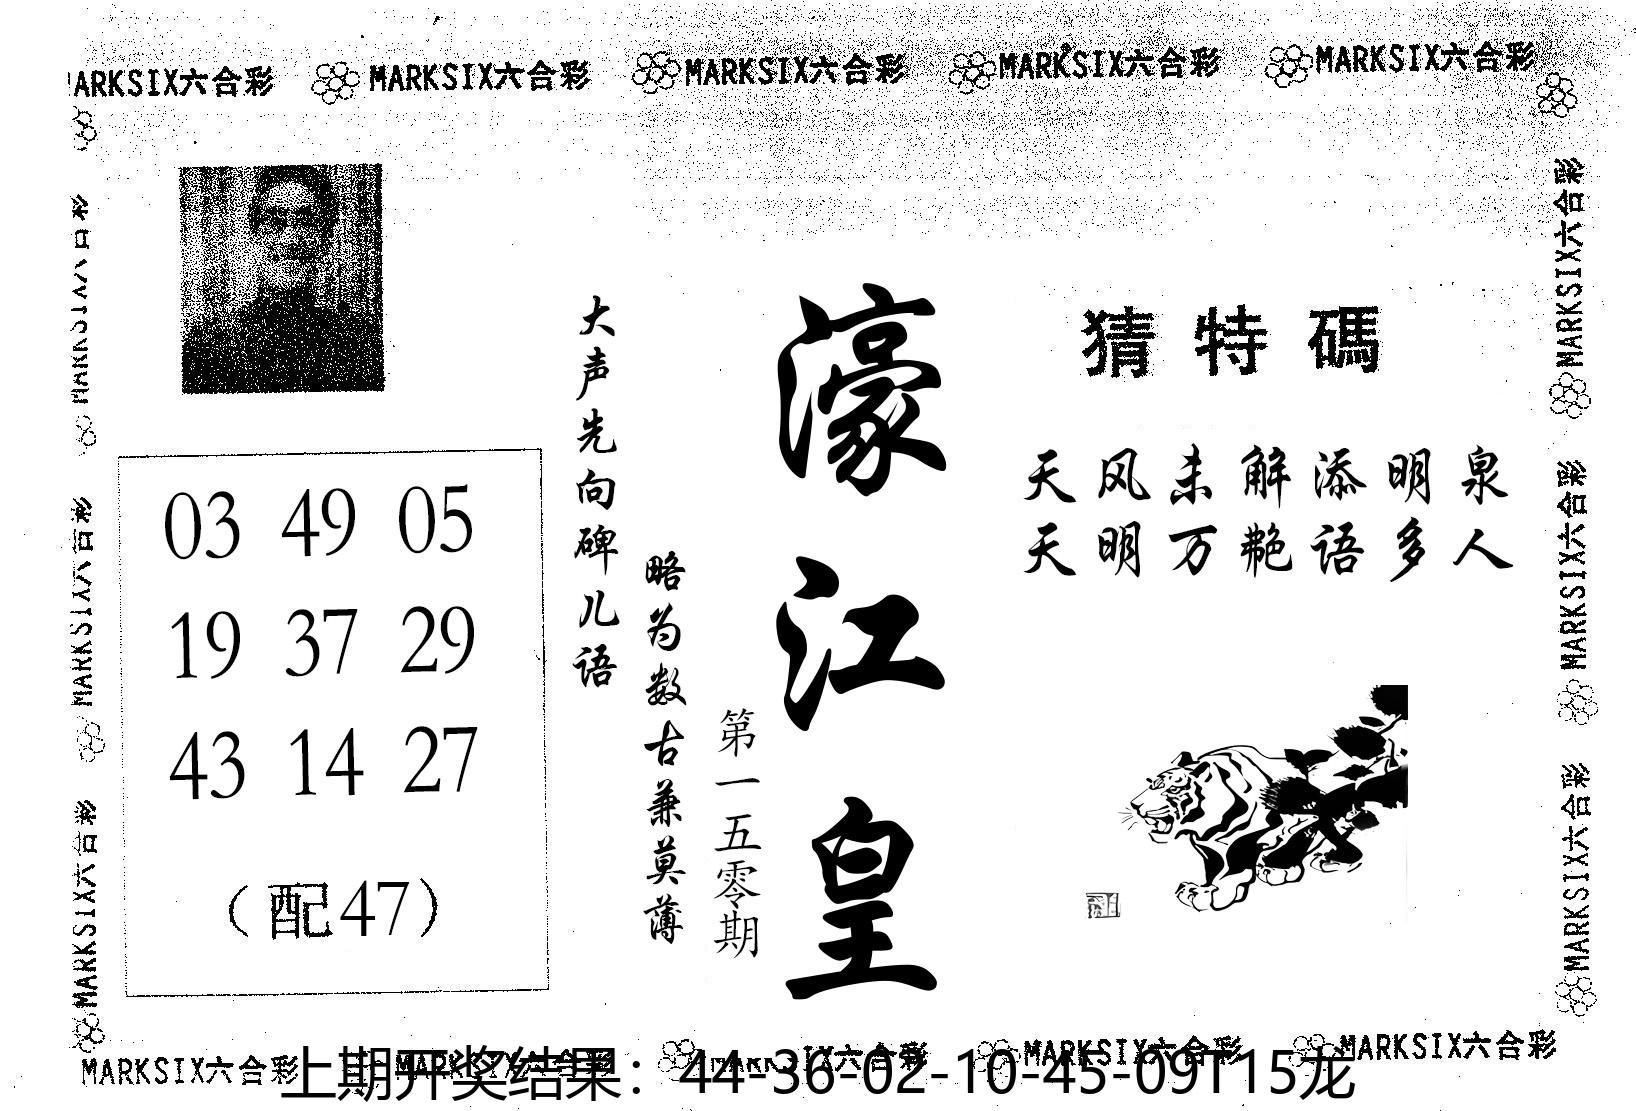 MARKSIX六合彩 MARKSIX六合彩 MARKSIX六合彩 MARKSIX六合彩 MARKSIX六合彩
猜特碼
天风未解添明泉
天明万艳语多人
濠江皇
第一五零期
大声先向碑儿语
略为数古兼莫薄
03 49 05
19 37 29
43 14 27
（配47）
MARKSIX六合彩
MARKSIX六合彩
MARKSIX六合彩
MARKSIX六合彩
MARKSIX六合彩
MARKSIX六合彩
MARKSIX六合彩 MARKSIX六合彩 MARKSIX六合彩 MARKSIX六合彩 MARKSIX六合彩
上期开奖结果：44-36-02-10-45-09T15龙